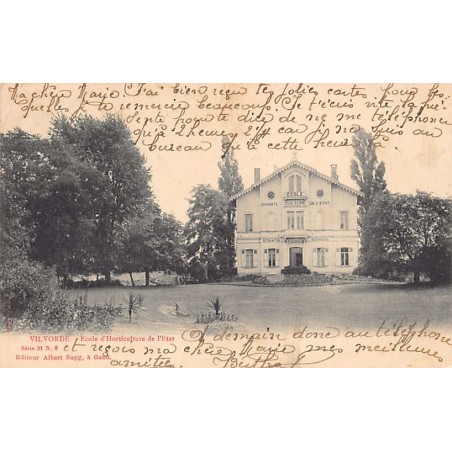 Ma chère Marie. J'ai bien reçu tes jolies cartes pour les
quelles je te remercie beaucoup. Je t'écris vite la que
sept pour te dire de ne me téléphoner
qu'à 2 heures au
bureau cette heure
ECOLE
D'HORTI CULTURE DE L'ETAT
VILVORDE. Ecole d'Horticulture de l'Etat
Série 31 N. 8
Editeur Albert Sugg, à Gand.
à demain donc au téléphone
et reçois ma chère Marie mes meilleures
amitiés. Bertha